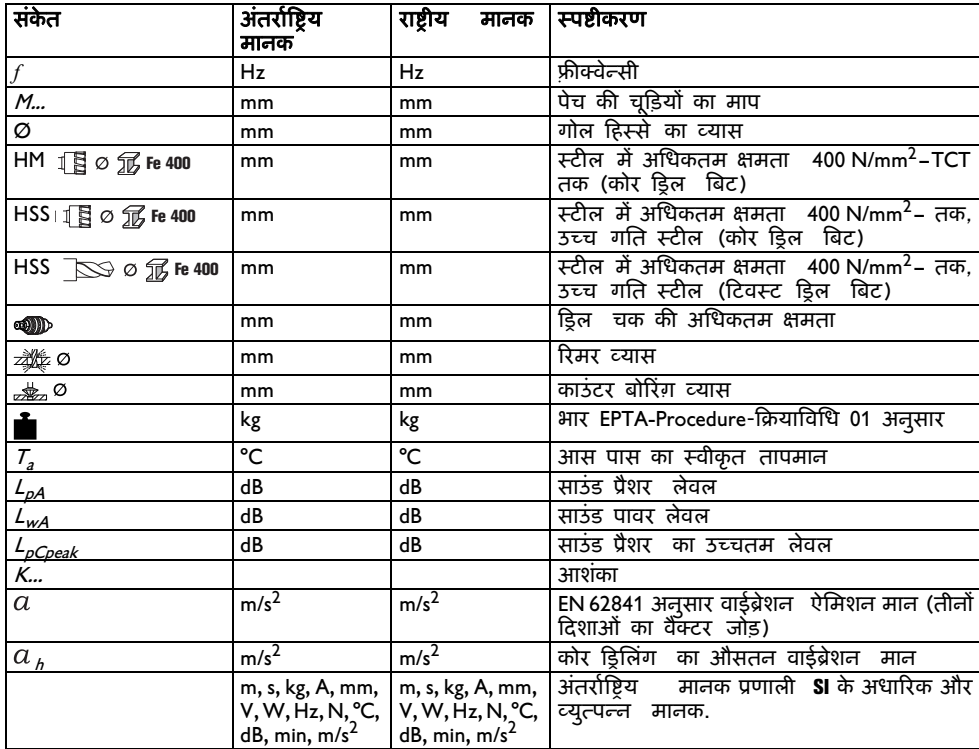 संकेत अंतर्राष्ट्रिय मानक राष्ट्रीय मानक स्पष्टीकरण
f Hz Hz फ़्रीक्वेन्सी
M... mm mm पेच की चूड़ियों का माप
Ø mm mm गोल हिस्से का व्यास
HM Ø Fe 400 mm mm स्टील में अधिकतम क्षमता 400 N/mm²–TCT
तक (कोर ड्रिल बिट)
HSS Ø Fe 400 mm mm स्टील में अधिकतम क्षमता 400 N/mm²– तक,
उच्च गति स्टील (कोर ड्रिल बिट)
HSS Ø Fe 400 mm mm स्टील में अधिकतम क्षमता 400 N/mm²– तक,
उच्च गति स्टील (टिवस्ट ड्रिल बिट)
mm mm ड्रिल चक की अधिकतम क्षमता
Ø mm mm रिमर व्यास
Ø mm mm काउंटर बोरिंग़ व्यास
kg kg भार EPTA-Procedure-क्रियाविधि 01 अनुसार
Ta °C °C आस पास का स्वीकृत तापमान
LpA dB dB साउंड प्रैशर लेवल
LwA dB dB साउंड पावर लेवल
LpCpeak dB dB साउंड प्रैशर का उच्चतम लेवल
K... आशंका
a m/s² m/s² EN 62841 अनुसार वाईब्रेशन ऐमिशन मान (तीनों
दिशाओं का वैक्टर जोड़)
a h m/s² m/s² कोर ड्रिलिंग का औसतन वाईब्रेशन मान
m, s, kg, A, mm, m, s, kg, A, mm, अंतर्राष्ट्रिय मानक प्रणाली SI के अधारिक और
V, W, Hz, N, °C, V, W, Hz, N, °C, व्युत्पन्न मानक.
dB, min, m/s² dB, min, m/s²